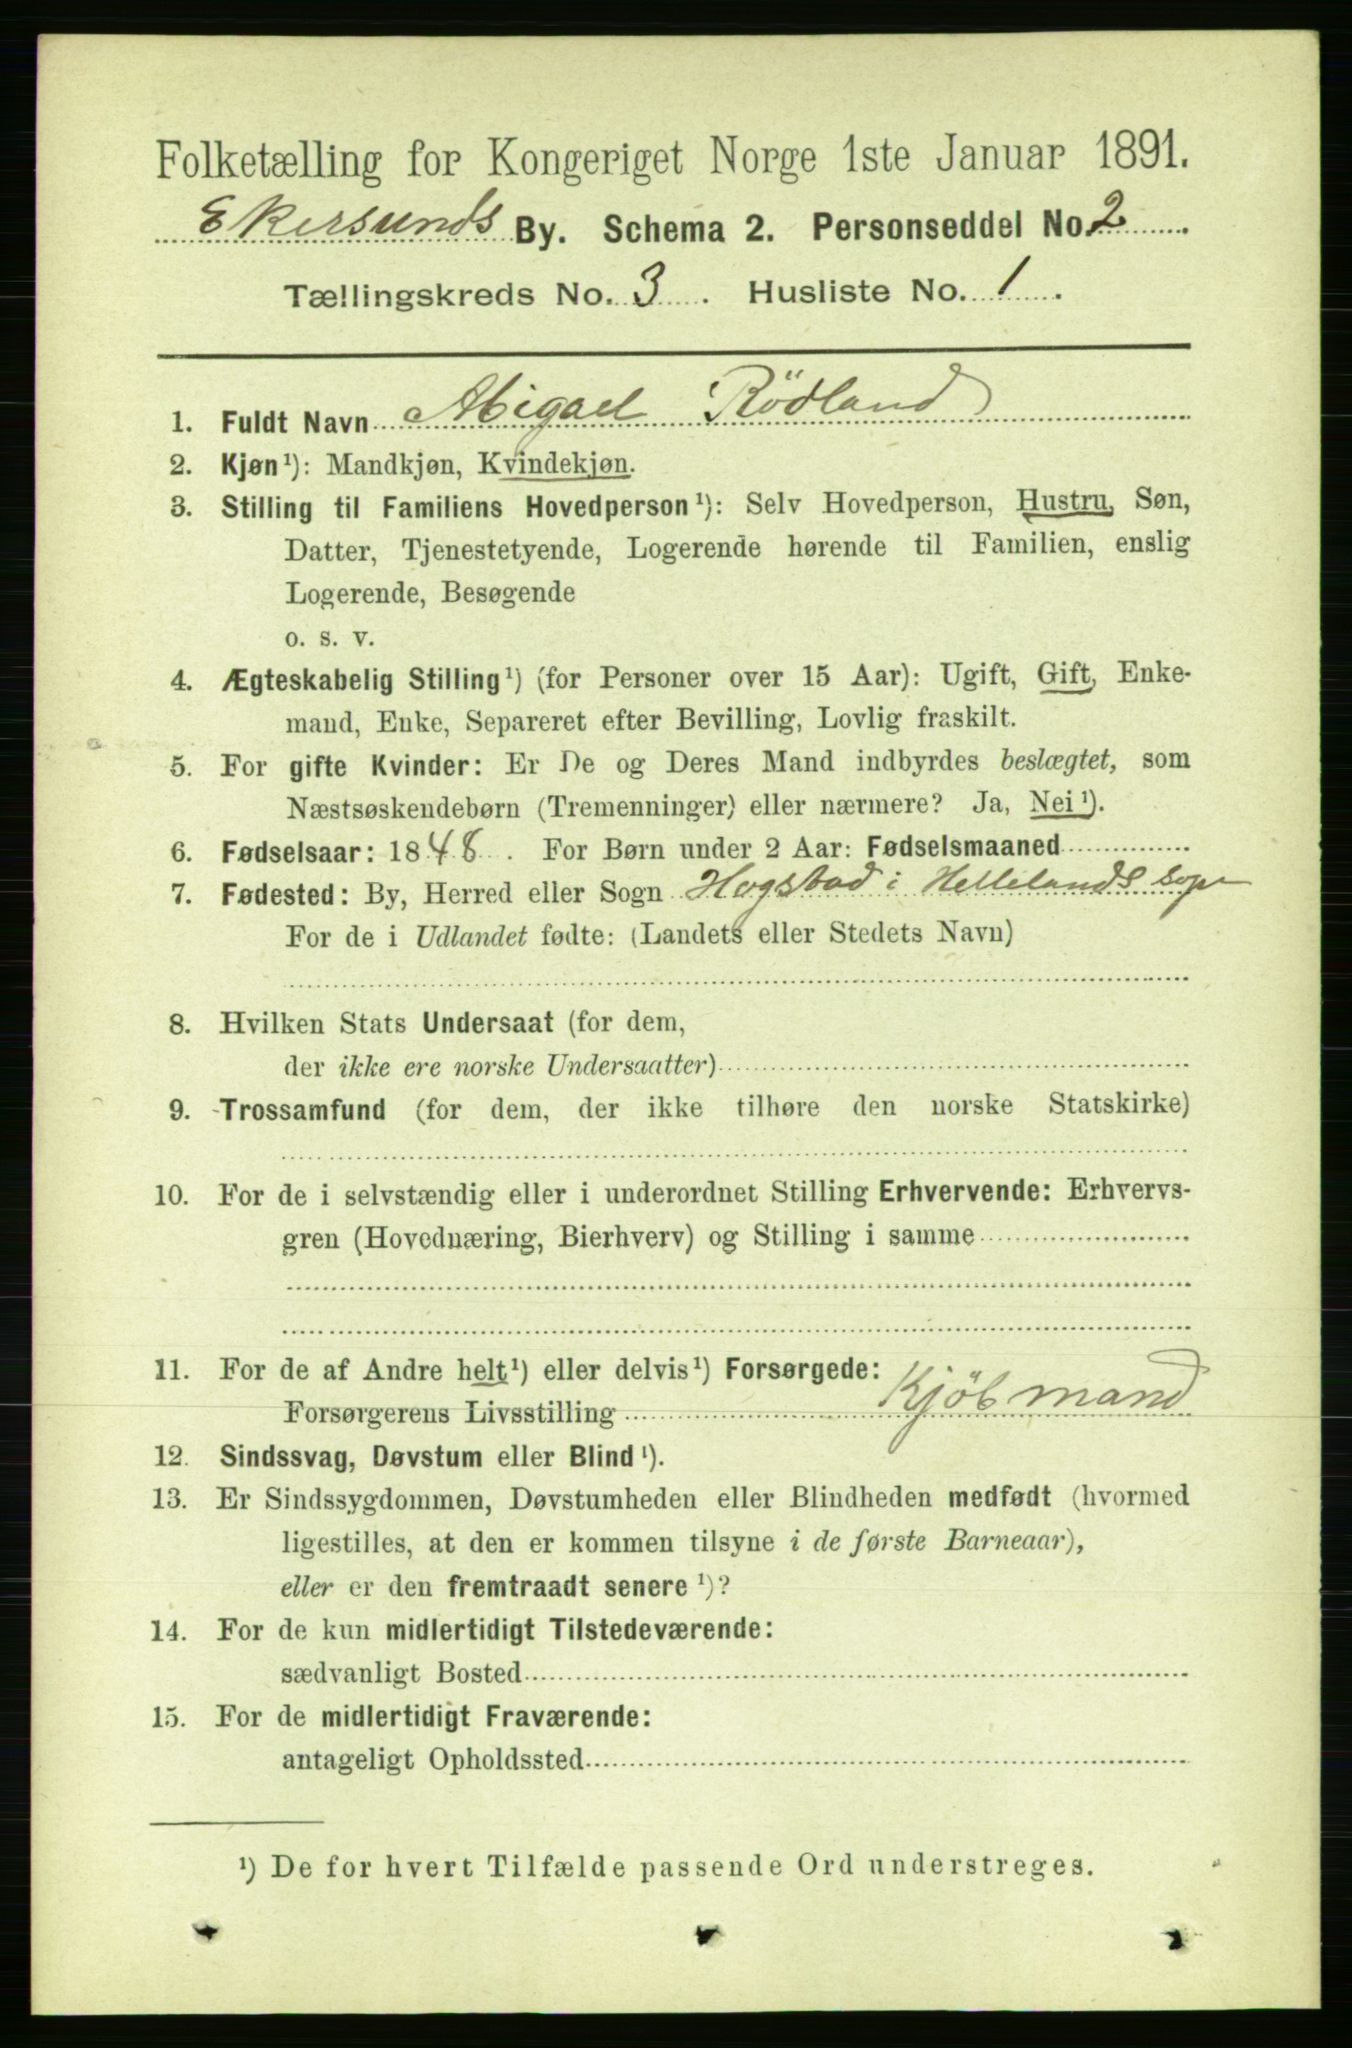 Folketælling for Kongeriget Norge 1ste Januar 1891.
Ekersunds By. Schema 2. Personseddel No. 2
Tællingskreds No. 3. Husliste No. 1.
1. Fuldt Navn Abigael Rödland
2. Kjøn¹): Mandkjøn, Kvindekjøn.
3. Stilling til Familiens Hovedperson¹): Selv Hovedperson, Hustru, Søn,
Datter, Tjenestetyende, Logerende hørende til Familien, enslig
Logerende, Besøgende
o. s. v.
4. Ægteskabelig Stilling¹) (for Personer over 15 Aar): Ugift, Gift, Enke-
mand, Enke, Separeret efter Bevilling, Lovlig fraskilt.
5. For gifte Kvinder: Er De og Deres Mand indbyrdes beslægtet, som
Næstsøskendebørn (Tremenninger) eller nærmere? Ja, Nei¹).
6. Fødselsaar: 1848. For Børn under 2 Aar: Fødselsmaaned
7. Fødested: By, Herred eller Sogn Hogstad i Hellelands Sogn
For de i Udlandet fødte: (Landets eller Stedets Navn)
8. Hvilken Stats Undersaat (for dem,
der ikke ere norske Undersaatter)
9. Trossamfund (for dem, der ikke tilhøre den norske Statskirke)
10. For de i selvstændig eller i underordnet Stilling Erhvervende: Erhvervs-
gren (Hovednæring, Bierhverv) og Stilling i samme
11. For de af Andre helt¹) eller delvis¹) Forsørgede:
Forsørgerens Livsstilling Kjöbmand
12. Sindssvag, Døvstum eller Blind¹).
13. Er Sindssygdommen, Døvstumheden eller Blindheden medfødt (hvormed
ligestilles, at den er kommen tilsyne i de første Barneaar),
eller er den fremtraadt senere¹)?
14. For de kun midlertidigt Tilstedeværende:
sædvanligt Bosted
15. For de midlertidigt Fraværende:
antageligt Opholdssted
¹) De for hvert Tilfælde passende Ord understreges.